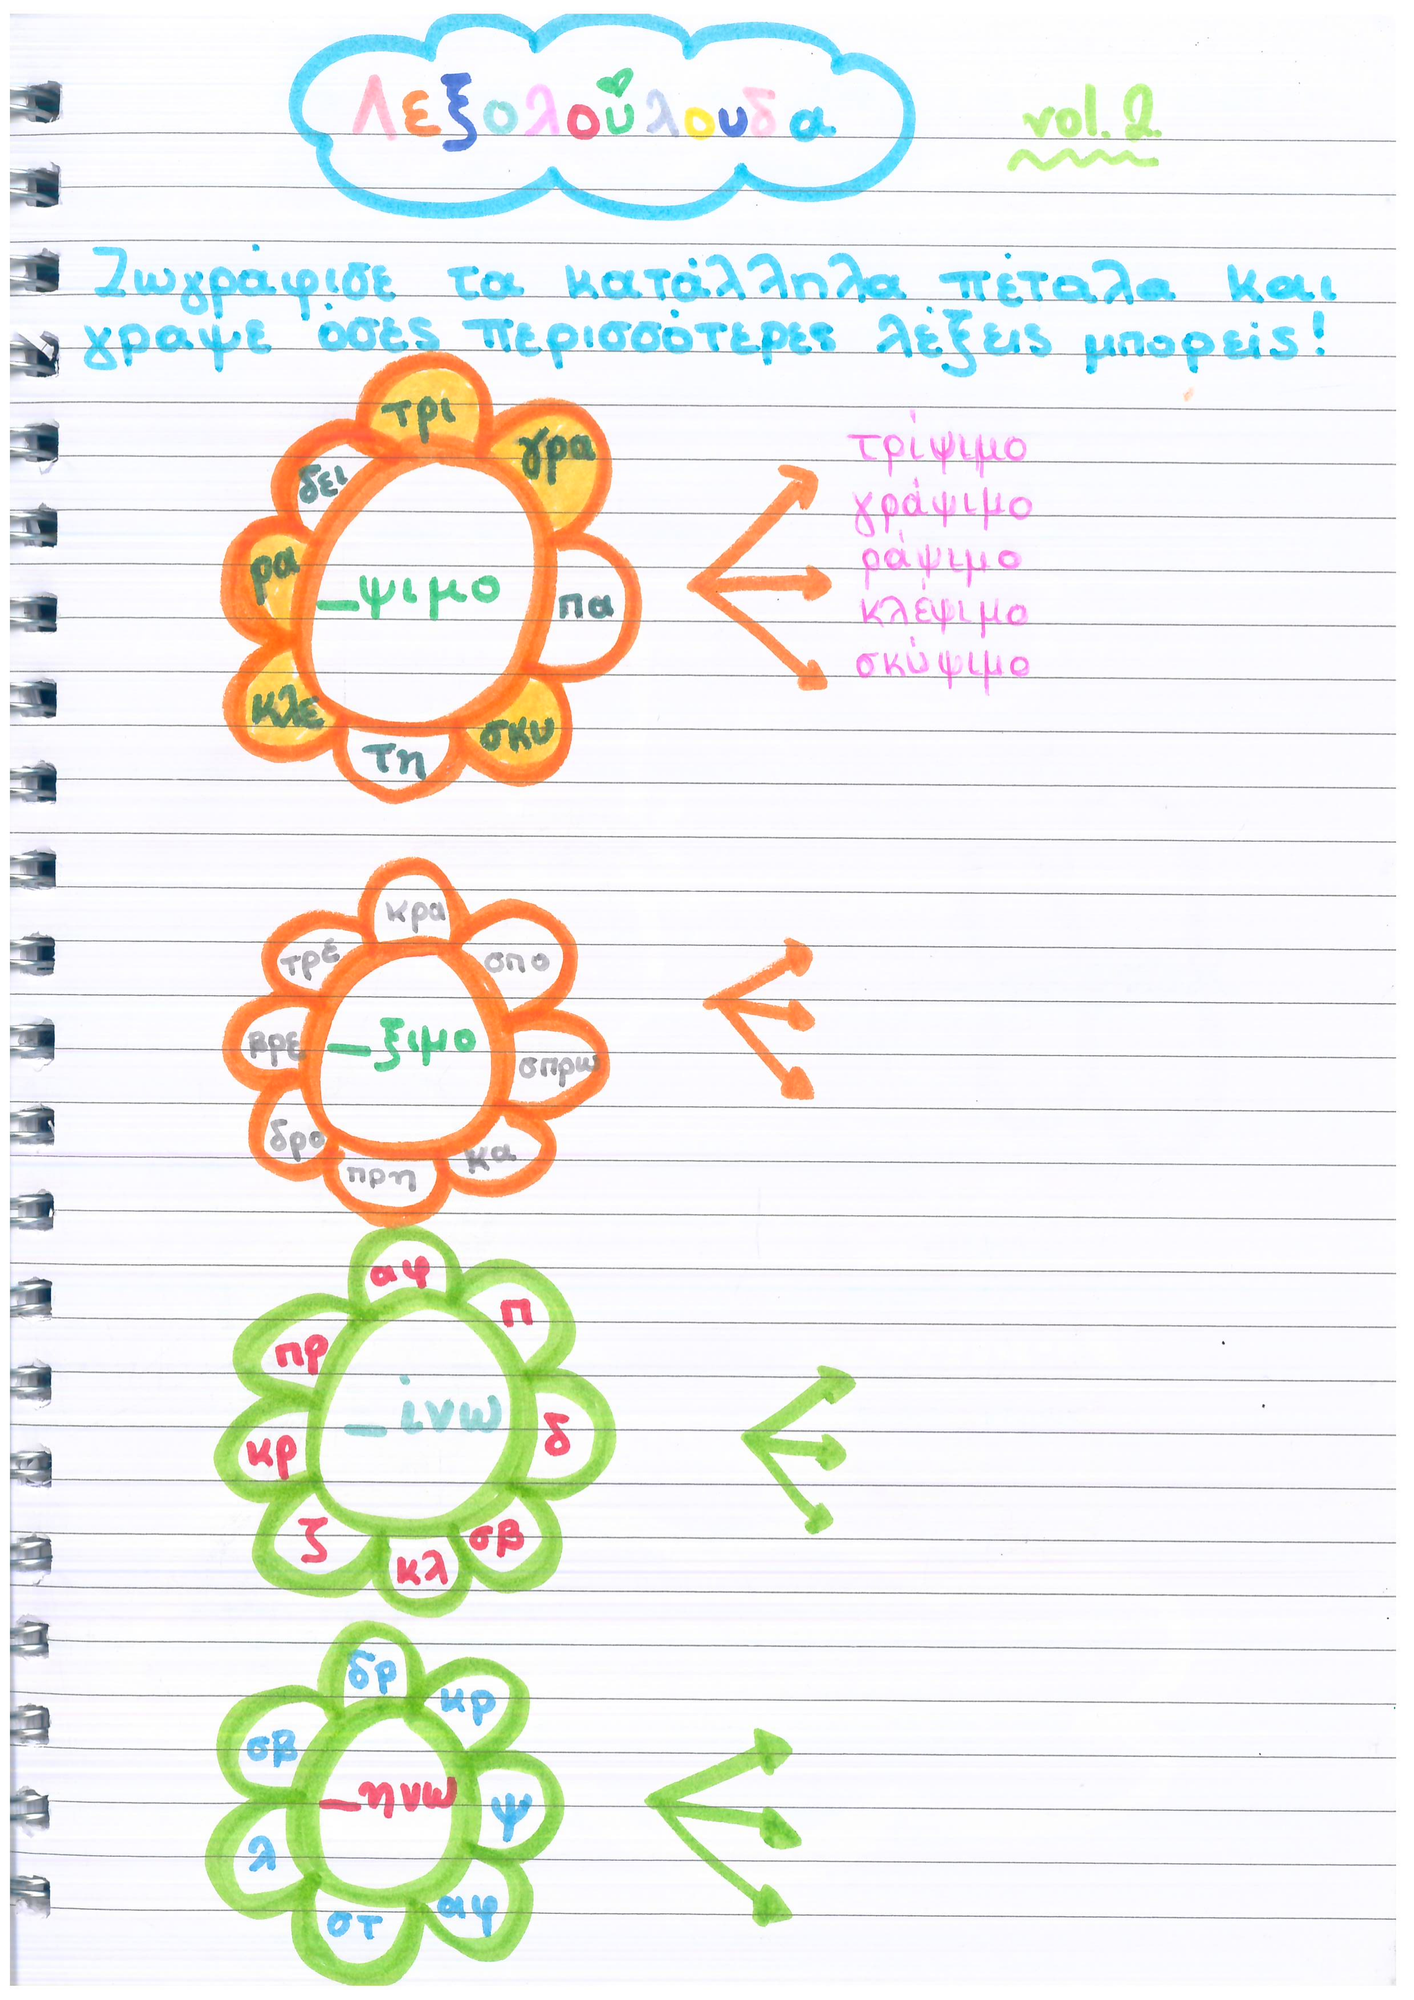 Λεξολούλουδα
vol. 2
Ζωγράφισε τα κατάλληλα πέταλα και
γραψε όσες περισσότερες λέξεις μπορείς!
τρι
γρα
δει
ρα
_ψιμο
πα
κλε
σκυ
τη
τρίψιμο
γράψιμο
ράψιμο
κλέψιμο
σκύψιμο
κρα
τρε
σπο
βρε
_ξιμο
σπρω
δρο
κα
πρη
αφ
π
πρ
_ίνω
δ
κρ
ζ
σβ
κλ
δρ
κρ
σβ
_ηνω
ψ
λ
στ
αφ